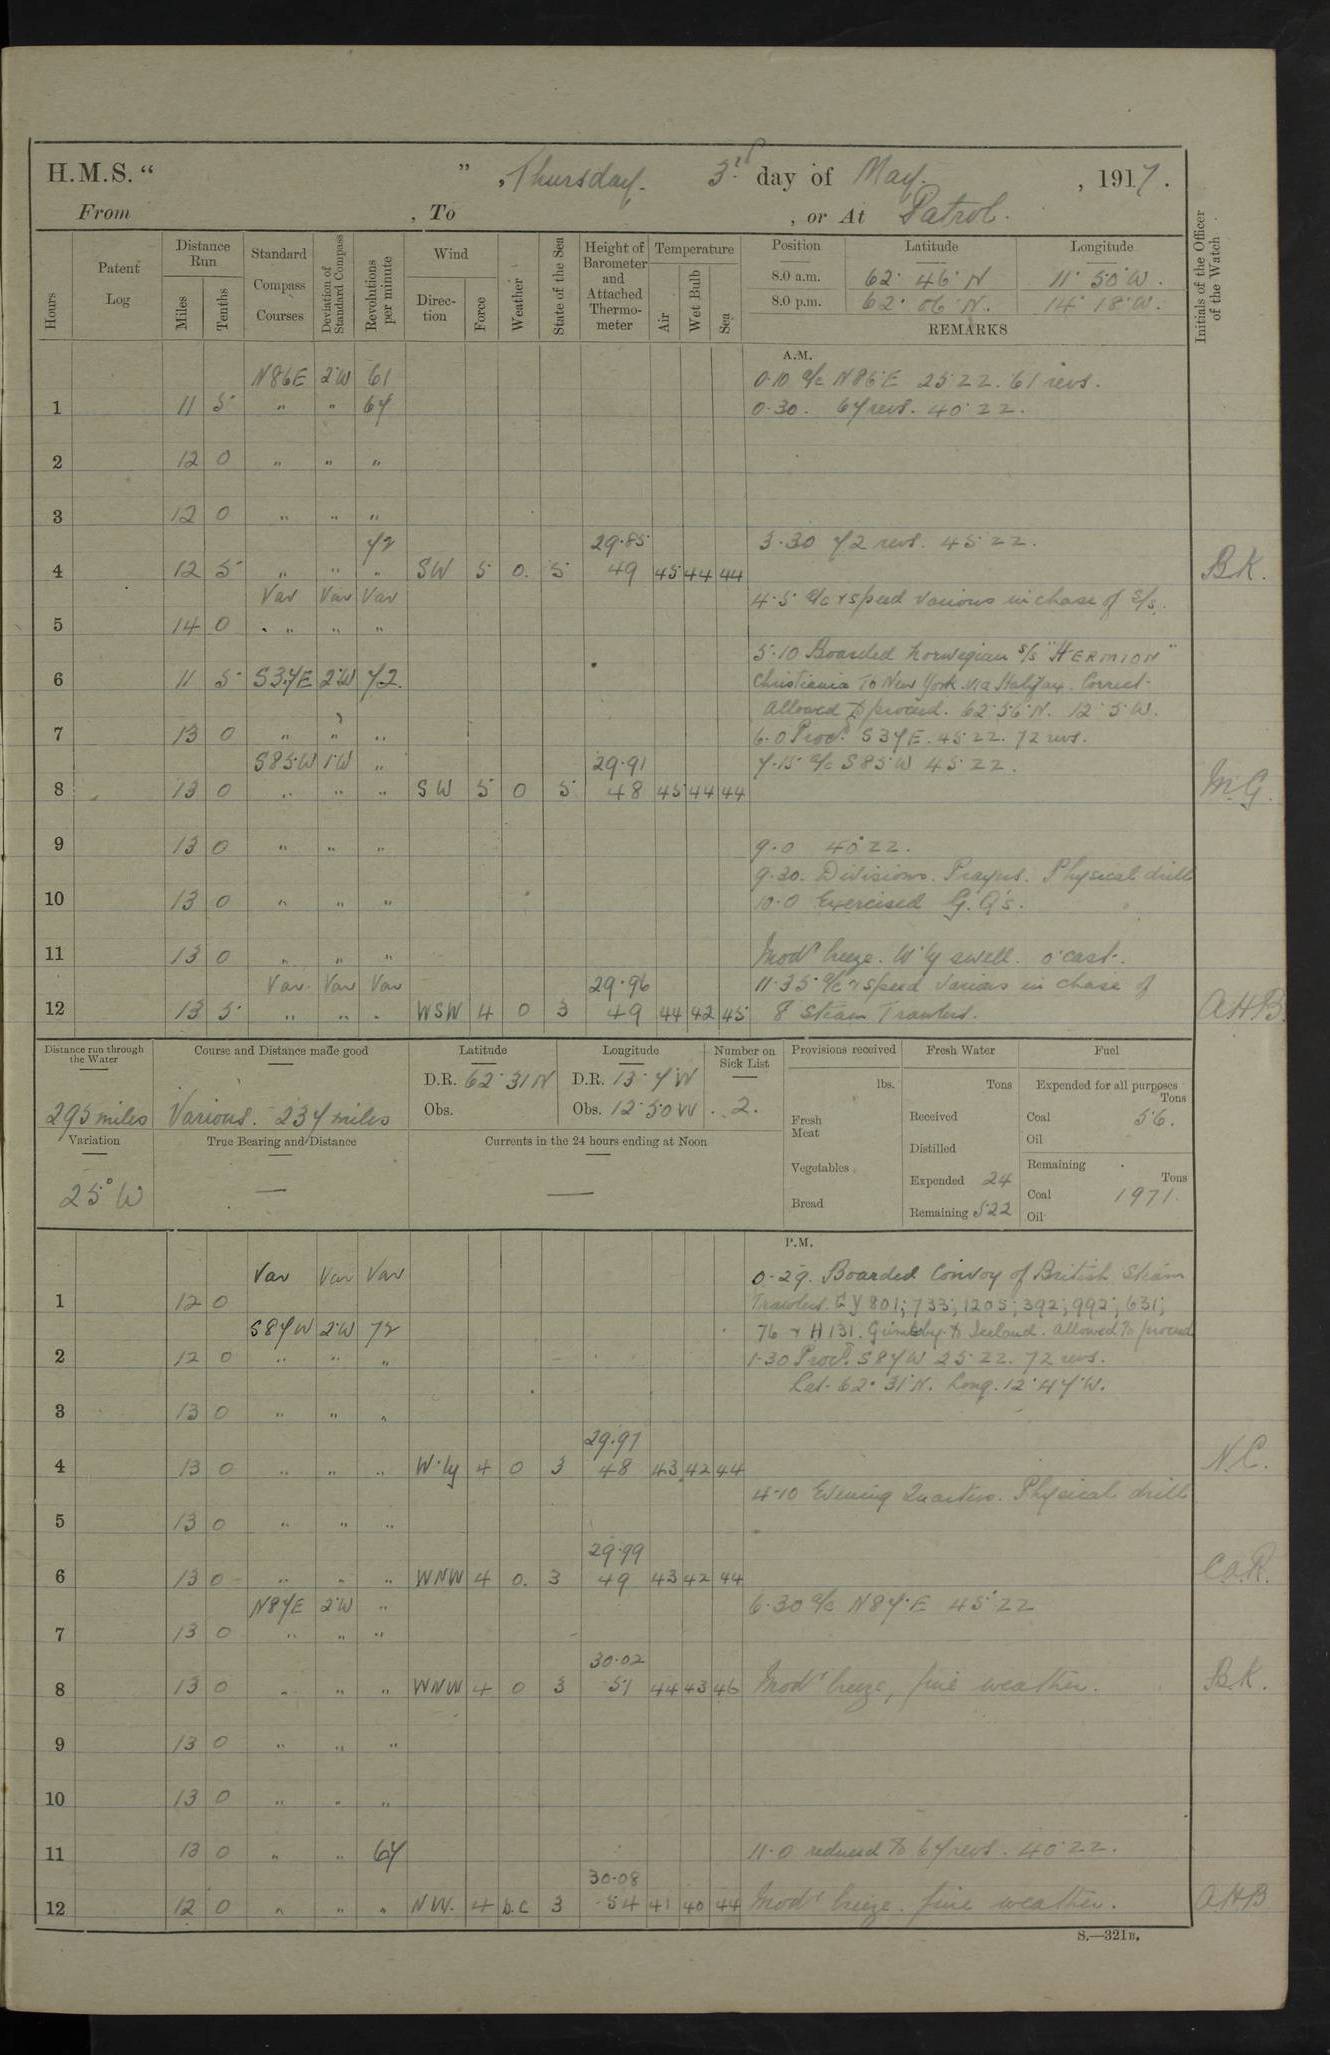 H.M.S. “ ” , Thursday. 3rd day of May. , 1917.
From , To , or At Patrol.
Hours
Patent Log
Distance Run
Miles
Tenths
Standard Compass Courses
Deviation of Standard Compass
Revolutions per minute
Wind
Direction
Force
Weather
State of the Sea
Height of Barometer and Attached Thermometer
Temperature
Air
Wet Bulb
Sea
Position Latitude Longitude
8.0 a.m. 62° 46' N 11° 50' W.
8.0 p.m. 62° 06' N. 14° 18' W.
REMARKS
Initials of the Officer of the Watch
A.M.
N86E 2°W 61 0.10 a/c N86°E 25 ZZ. 61 revs.
1 11 5 " " 67 0.30. 67 revs. 40° ZZ.
2 12 0 " " "
3 12 0 " " "
72 29.85 3.30 72 revs. 45° ZZ.
4 12 5 " " " SW 5 0. 5 49 45 44 44 B.K.
Var Var Var 4.5 a/c & speed various in chase of S/s.
5 14 0 " " "
5.10 Boarded Norwegian S/S "HERMION"
6 11 5 S37E 2°W 72. Christiania to New York via Halifax. Correct.
Allowed to proceed. 62°56'N. 12°5'W.
7 13 0 " " " 6.0 Procd. S37E. 45° ZZ. 72 revs.
S85W 1°W " 29.91 7.15 a/c S85W 45° ZZ.
8 13 0 " " " SW 5 0 5 48 45 44 44 M.G.
9 13 0 " " " 9.0 40° ZZ.
9.30. Divisions. Prayers. Physical drill
10 13 0 " " " 10.0 Exercised G.Q's.
11 13 0 " " " Modt breeze. W'ly swell. o'cast.
Var Var Var 29.96 11.35 a/c & speed various in chase of
12 13 5 " " " WSW 4 0 3 49 44 42 45 8 Steam Trawlers. A.H.B.
Distance run through the Water
295 miles
Course and Distance made good
Various. 237 miles
Latitude
D.R. 62° 31 N
Obs.
Longitude
D.R. 13° 7' W
Obs. 12° 50 W
Number on Sick List
2.
Variation
25° W
True Bearing and Distance
—
Currents in the 24 hours ending at Noon
—
Provisions received
lbs.
Fresh Meat
Vegetables
Bread
Fresh Water
Tons
Received
Distilled
Expended 24
Remaining 522
Fuel
Expended for all purposes
Tons
Coal 56.
Oil
Remaining
Tons
Coal 1971.
Oil
P.M.
Var Var Var 0.29. Boarded Convoy of British Steam
1 12 0 Trawlers. GY 801; 733; 1205; 392; 992; 631;
S87W 2°W 72 76 & H 131. Grimsby to Iceland. Allowed to proceed
2 12 0 " " " 1.30 Procd. S87W 25° ZZ. 72 revs.
Lat. 62° 31'N. Long. 12°47'W.
3 13 0 " " "
29.97
4 13 0 " " " W'ly 4 0 3 48 43 42 44 N.C.
4.10 Evening Quarters. Physical drill
5 13 0 " " "
29.99
6 13 0 " " " WNW 4 0. 3 49 43 42 44 C.O.R.
N87E 2°W " 6.30 a/c N87°E 45° ZZ
7 13 0 " " "
30.02
8 13 0 " " " WNW 4 0 3 51 44 43 46 Modt breeze, fine weather. B.K.
9 13 0 " " "
10 13 0 " " "
11 13 0 " " 67 11.0 reduced to 67 revs. 40° ZZ.
30.08
12 12 0 " " " NW. 4 b.c 3 54 41 40 44 Modt breeze. fine weather. A.H.B
S.—321B.